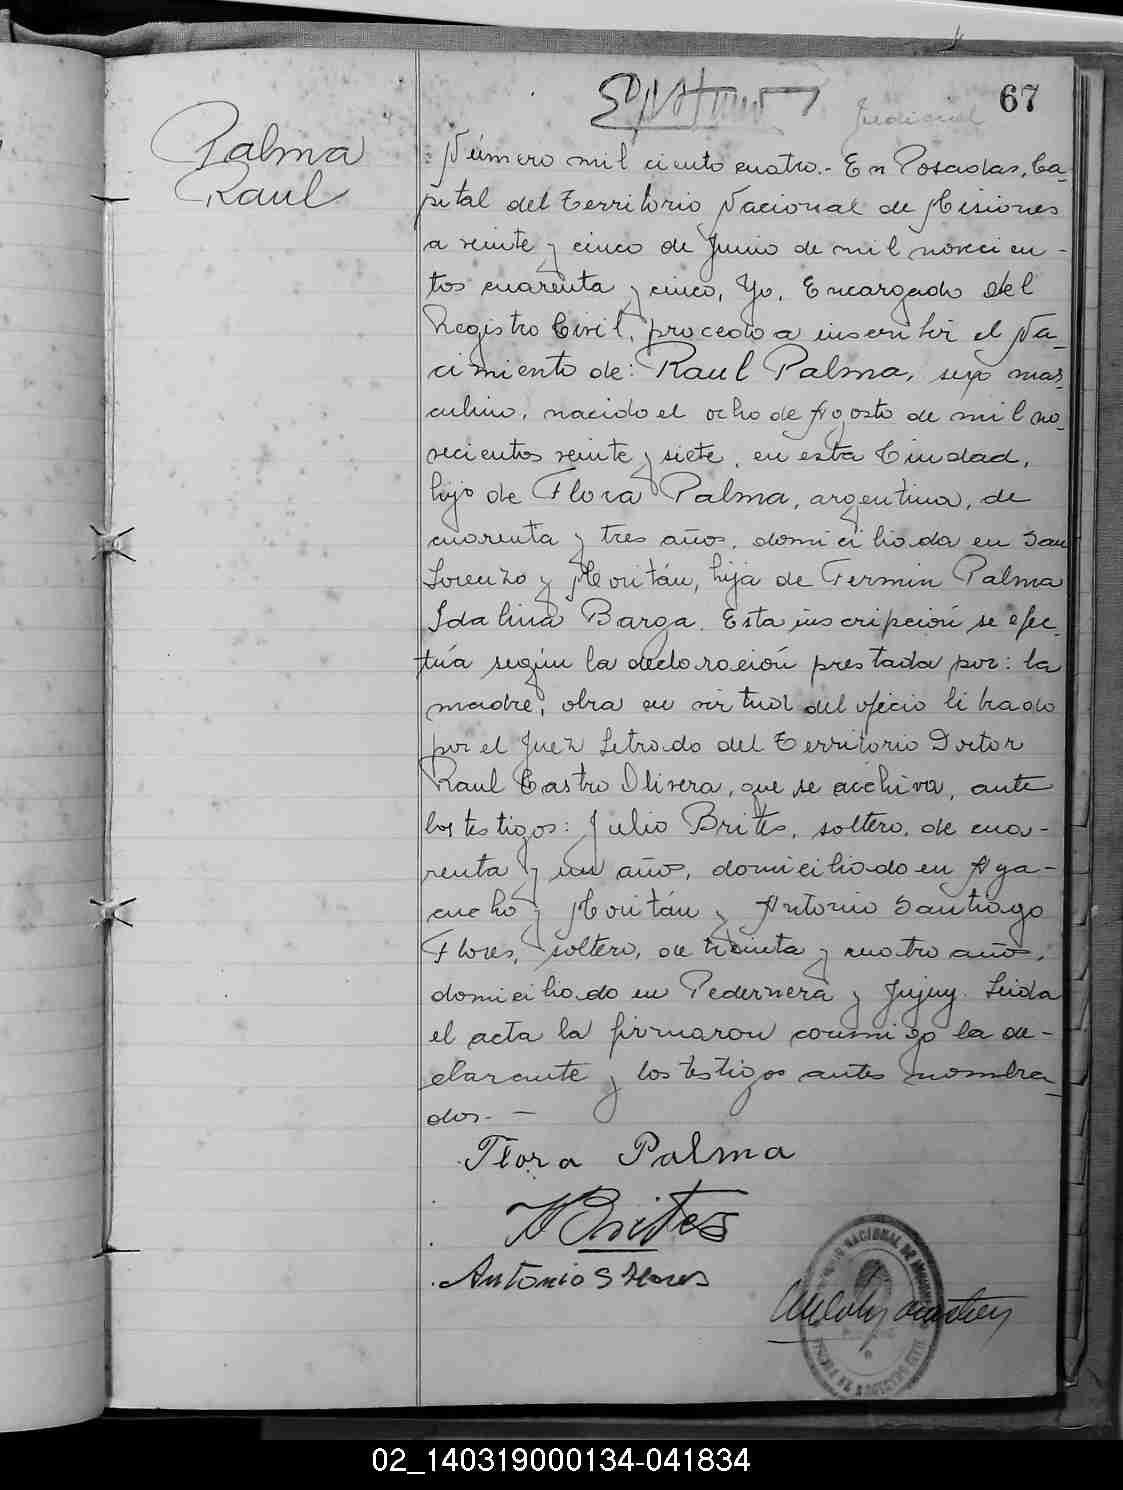 67
Judicial
Palma
Raul
Número mil ciento cuatro.- En Posadas, Ca-
pital del Territorio Nacional de Misiones
a veinte y cinco de Junio de mil novecien-
tos cuarenta y cinco, Yo, Encargado del
Registro Civil, procedo a inscribir el Na-
cimiento de: Raul Palma, sexo mas-
culino, nacido el ocho de Agosto de mil no-
vecientos veinte y siete, en esta Ciudad,
hijo de Flora Palma, argentina, de
cuarenta y tres años, domiciliada en San
Lorenzo y Moritán, hija de Fermin Palma
Idalina Barga. Esta inscripción se efec-
túa según la declaración prestada por: la
madre, obra en virtud del oficio librado
por el Juez Letrado del Territorio Doctor
Raul Castro Olivera, que se archiva, ante
los testigos: Julio Brites, soltero, de cua-
renta y un años, domiciliado en Aya-
cucho y Moritán y Antonio Santiago
Flores, soltero, de treinta y cuatro años,
domiciliado en Pedernera y Jujuy. Leida
el acta la firmaron conmigo la de-
clarante y los testigos antes nombra-
dos.-
Flora Palma
J Brites
Antonio S Flores
02_140319000134-041834